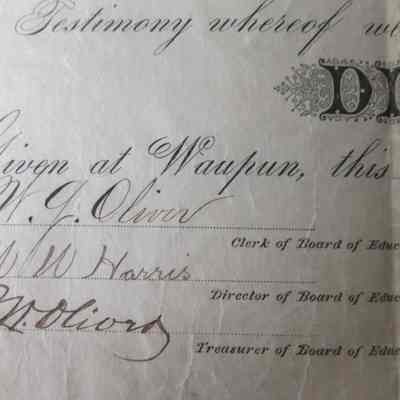 Testimony whereof we
DI
Given at Waupun, this
W. G. Oliver
Clerk of Board of Educ
W Harris
Director of Board of Educ
W. Olivers
Treasurer of Board of Educ